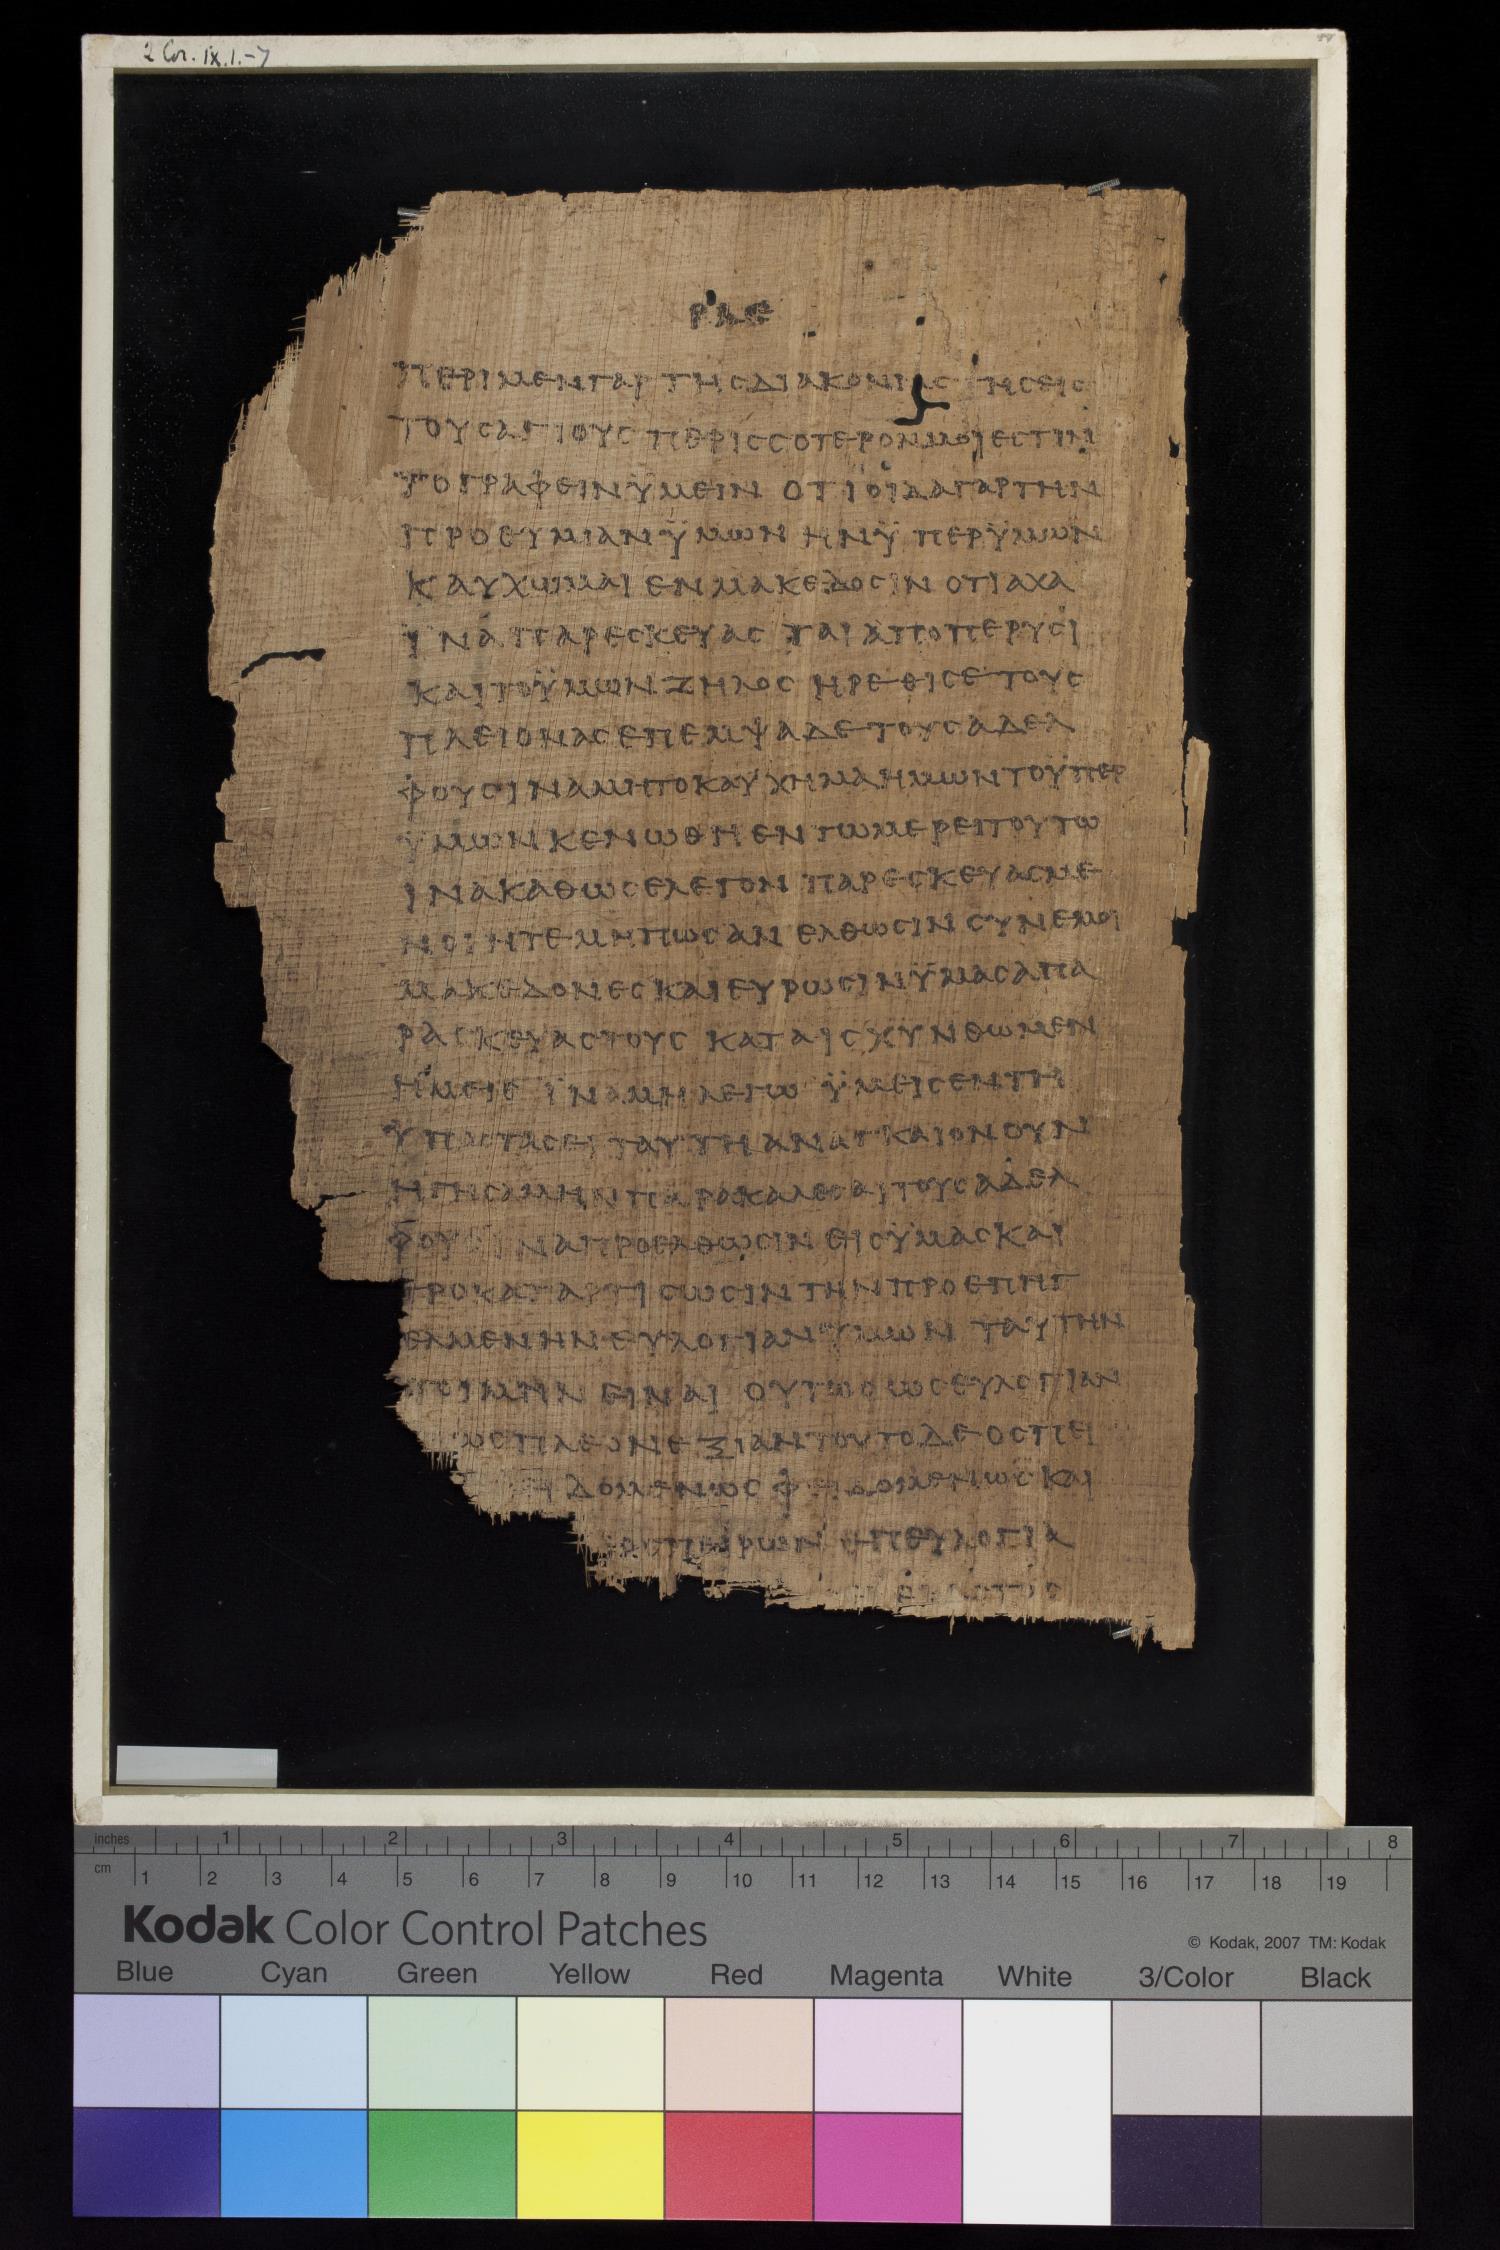 2 Cor. ix.1.-7
ΡΛΕ
ΠΕΡΙΜΕΝΓΑΡ ΤΗϹΔΙΑΚΟΝΙΑϹ ΤΗϹΕΙϹ
ΤΟΥϹΑΓΙΟΥϹ ΠΕΡΙϹϹΟΤΕΡΟΝΜΟΙΕϹΤΙΝ
ΤΟΓΡΑΦΕΙΝΫΜΕΙΝ ΟΤΙΟΙΔΑΓΑΡΤΗΝ
ΠΡΟΘΥΜΙΑΝΫΜΩΝ ΗΝΫΠΕΡΫΜΩΝ
ΚΑΥΧΩΜΑΙ ΕΝΜΑΚΕΔΟϹΙΝ ΟΤΙΑΧΑ
ΙΝΑΠΑΡΕϹΚΕΥΑϹΤΑΙ ΑΠΟΠΕΡΥϹΙ
ΚΑΙΤΟΫΜΩΝ ΖΗΛΟϹ ΗΡΕΘΙϹΕΤΟΥϹ
ΠΛΕΙΟΝΑϹΕΠΕΜΨΑΔΕΤΟΥϹΑΔΕΛ
ΦΟΥϹΙΝΑΜΗΤΟΚΑΥΧΗΜΑΗΜΩΝΤΟΫΠΕΡ
ΫΜΩΝΚΕΝΩΘΗ ΕΝΤΩΜΕΡΕΙΤΟΥΤΩ
ΙΝΑΚΑΘΩϹΕΛΕΓΟΝ ΠΑΡΕϹΚΕΥΑϹΜΕ
ΝΟΙΗΤΕΜΗΠΩϹΑΝ ΕΛΘΩϹΙΝ ϹΥΝΕΜΟΙ
ΜΑΚΕΔΟΝΕϹΚΑΙΕΥΡΩϹΙΝΫΜΑϹΑΠΑ
ΡΑϹΚΕΥΑϹΤΟΥϹ ΚΑΤΑΙϹΧΥΝΘΩΜΕΝ
ΗΜΕΙϹ ΪΝΑΜΗΛΕΓΩ ΫΜΕΙϹΕΝΤΗ
ΫΠΟϹΤΑϹΕΙ ΤΑΥΤΗ ΑΝΑΓΚΑΙΟΝΟΥΝ
ΗΓΗϹΑΜΗΝΠΑΡΑΚΑΛΕϹΑΙΤΟΥϹΑΔΕΛ
ΦΟΥϹΙΝΑΠΡΟΕΛΘΩϹΙΝ ΕΙϹΫΜΑϹΚΑΙ
ΠΡΟΚΑΤΑΡΤΙϹΩϹΙΝΤΗΝΠΡΟΕΠΗΓ
ΕΛΜΕΝΗΝΕΥΛΟΓΙΑΝΫΜΩΝ ΤΑΥΤΗΝ
ΕΤΟΙΜΗΝ ΕΙΝΑΙ ΟΥΤΩϹ ΩϹΕΥΛΟΓΙΑΝ
ΩϹΠΛΕΟΝΕΞΙΑΝΤΟΥΤΟΔΕ ΟϹΠΕΙ
ΔΟΜΕΝΩϹ ΦΕΙΔΟΜΕΝΩϹ ΚΑΙ
ΟϹΠΕΙΡΩΝ ΕΠΕΥΛΟΓΙΑ
ΕΚΑϹΤΟϹ
inches 1 2 3 4 5 6 7 8
cm 1 2 3 4 5 6 7 8 9 10 11 12 13 14 15 16 17 18 19
Kodak Color Control Patches
© Kodak, 2007 TM: Kodak
Blue Cyan Green Yellow Red Magenta White 3/Color Black